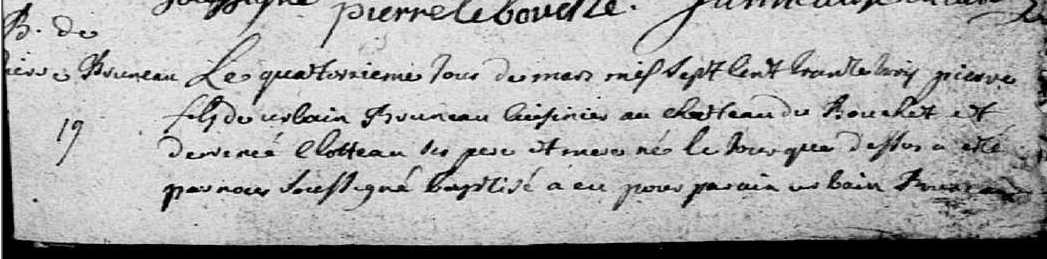 soussigné pierre le bouclle.
B. de
pierre Bruneau Le quatorzieme Jour de mars mil sept Cent trante trois pierre
fils de urbain Bruneau Cuisinier au chatteau du Bouchet et
19 de renée Clotteau ses pere et mere né le Jour que dessus a eté
par nous soussigné baptisé a eu pour parain urbain Bruneau